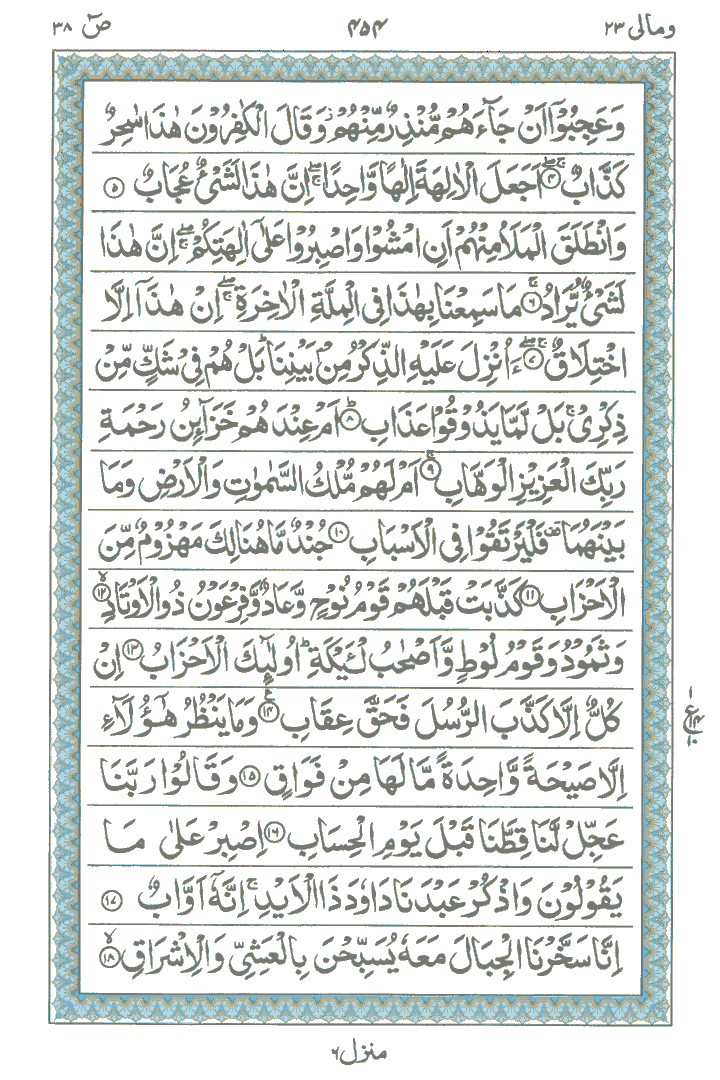 ومالی ۲۳ ۴۵۴ صٓ ۳۸
وَعَجِبُوْۤا اَنْ جَآءَهُمْ مُّنْذِرٌ مِّنْهُمْ ؗ وَقَالَ الْكٰفِرُوْنَ هٰذَا سٰحِرٌ
كَذَّابٌ ۴ اَجَعَلَ الْاٰلِهَةَ اِلٰهًا وَّاحِدًا ۚ اِنَّ هٰذَا لَشَیْءٌ عُجَابٌ ۵
وَانْطَلَقَ الْمَلَاُ مِنْهُمْ اَنِ امْشُوْا وَاصْبِرُوْا عَلٰۤی اٰلِهَتِكُمْ ۚ اِنَّ هٰذَا
لَشَیْءٌ یُّرَادُ ۶ مَا سَمِعْنَا بِهٰذَا فِی الْمِلَّةِ الْاٰخِرَةِ ۚ اِنْ هٰذَاۤ اِلَّا
اخْتِلَاقٌ ۷ ءَاُنْزِلَ عَلَیْهِ الذِّكْرُ مِنْۢ بَیْنِنَا ؕ بَلْ هُمْ فِیْ شَكٍّ مِّنْ
ذِكْرِیْ ۚ بَلْ لَّمَّا یَذُوْقُوْا عَذَابِ ۸ اَمْ عِنْدَهُمْ خَزَآئِنُ رَحْمَةِ
رَبِّكَ الْعَزِیْزِ الْوَهَّابِ ۹ اَمْ لَهُمْ مُّلْكُ السَّمٰوٰتِ وَالْاَرْضِ وَمَا
بَیْنَهُمَا ۫ فَلْیَرْتَقُوْا فِی الْاَسْبَابِ ۱۰ جُنْدٌ مَّا هُنَالِكَ مَهْزُوْمٌ مِّنَ
الْاَحْزَابِ ۱۱ كَذَّبَتْ قَبْلَهُمْ قَوْمُ نُوْحٍ وَّعَادٌ وَّفِرْعَوْنُ ذُو الْاَوْتَادِ ۱۲
وَثَمُوْدُ وَقَوْمُ لُوْطٍ وَّاَصْحٰبُ لْئَیْكَةِ ؕ اُولٰٓئِكَ الْاَحْزَابُ ۱۳ اِنْ
كُلٌّ اِلَّا كَذَّبَ الرُّسُلَ فَحَقَّ عِقَابِ ۱۴ وَمَا یَنْظُرُ هٰۤؤُلَآءِ
اِلَّا صَیْحَةً وَّاحِدَةً مَّا لَهَا مِنْ فَوَاقٍ ۱۵ وَقَالُوْا رَبَّنَا
عَجِّلْ لَّنَا قِطَّنَا قَبْلَ یَوْمِ الْحِسَابِ ۱۶ اِصْبِرْ عَلٰی مَا
یَقُوْلُوْنَ وَاذْكُرْ عَبْدَنَا دَاوٗدَ ذَا الْاَیْدِ ۚ اِنَّهٗۤ اَوَّابٌ ۱۷
اِنَّا سَخَّرْنَا الْجِبَالَ مَعَهٗ یُسَبِّحْنَ بِالْعَشِیِّ وَالْاِشْرَاقِ ۱۸
منزل ۶